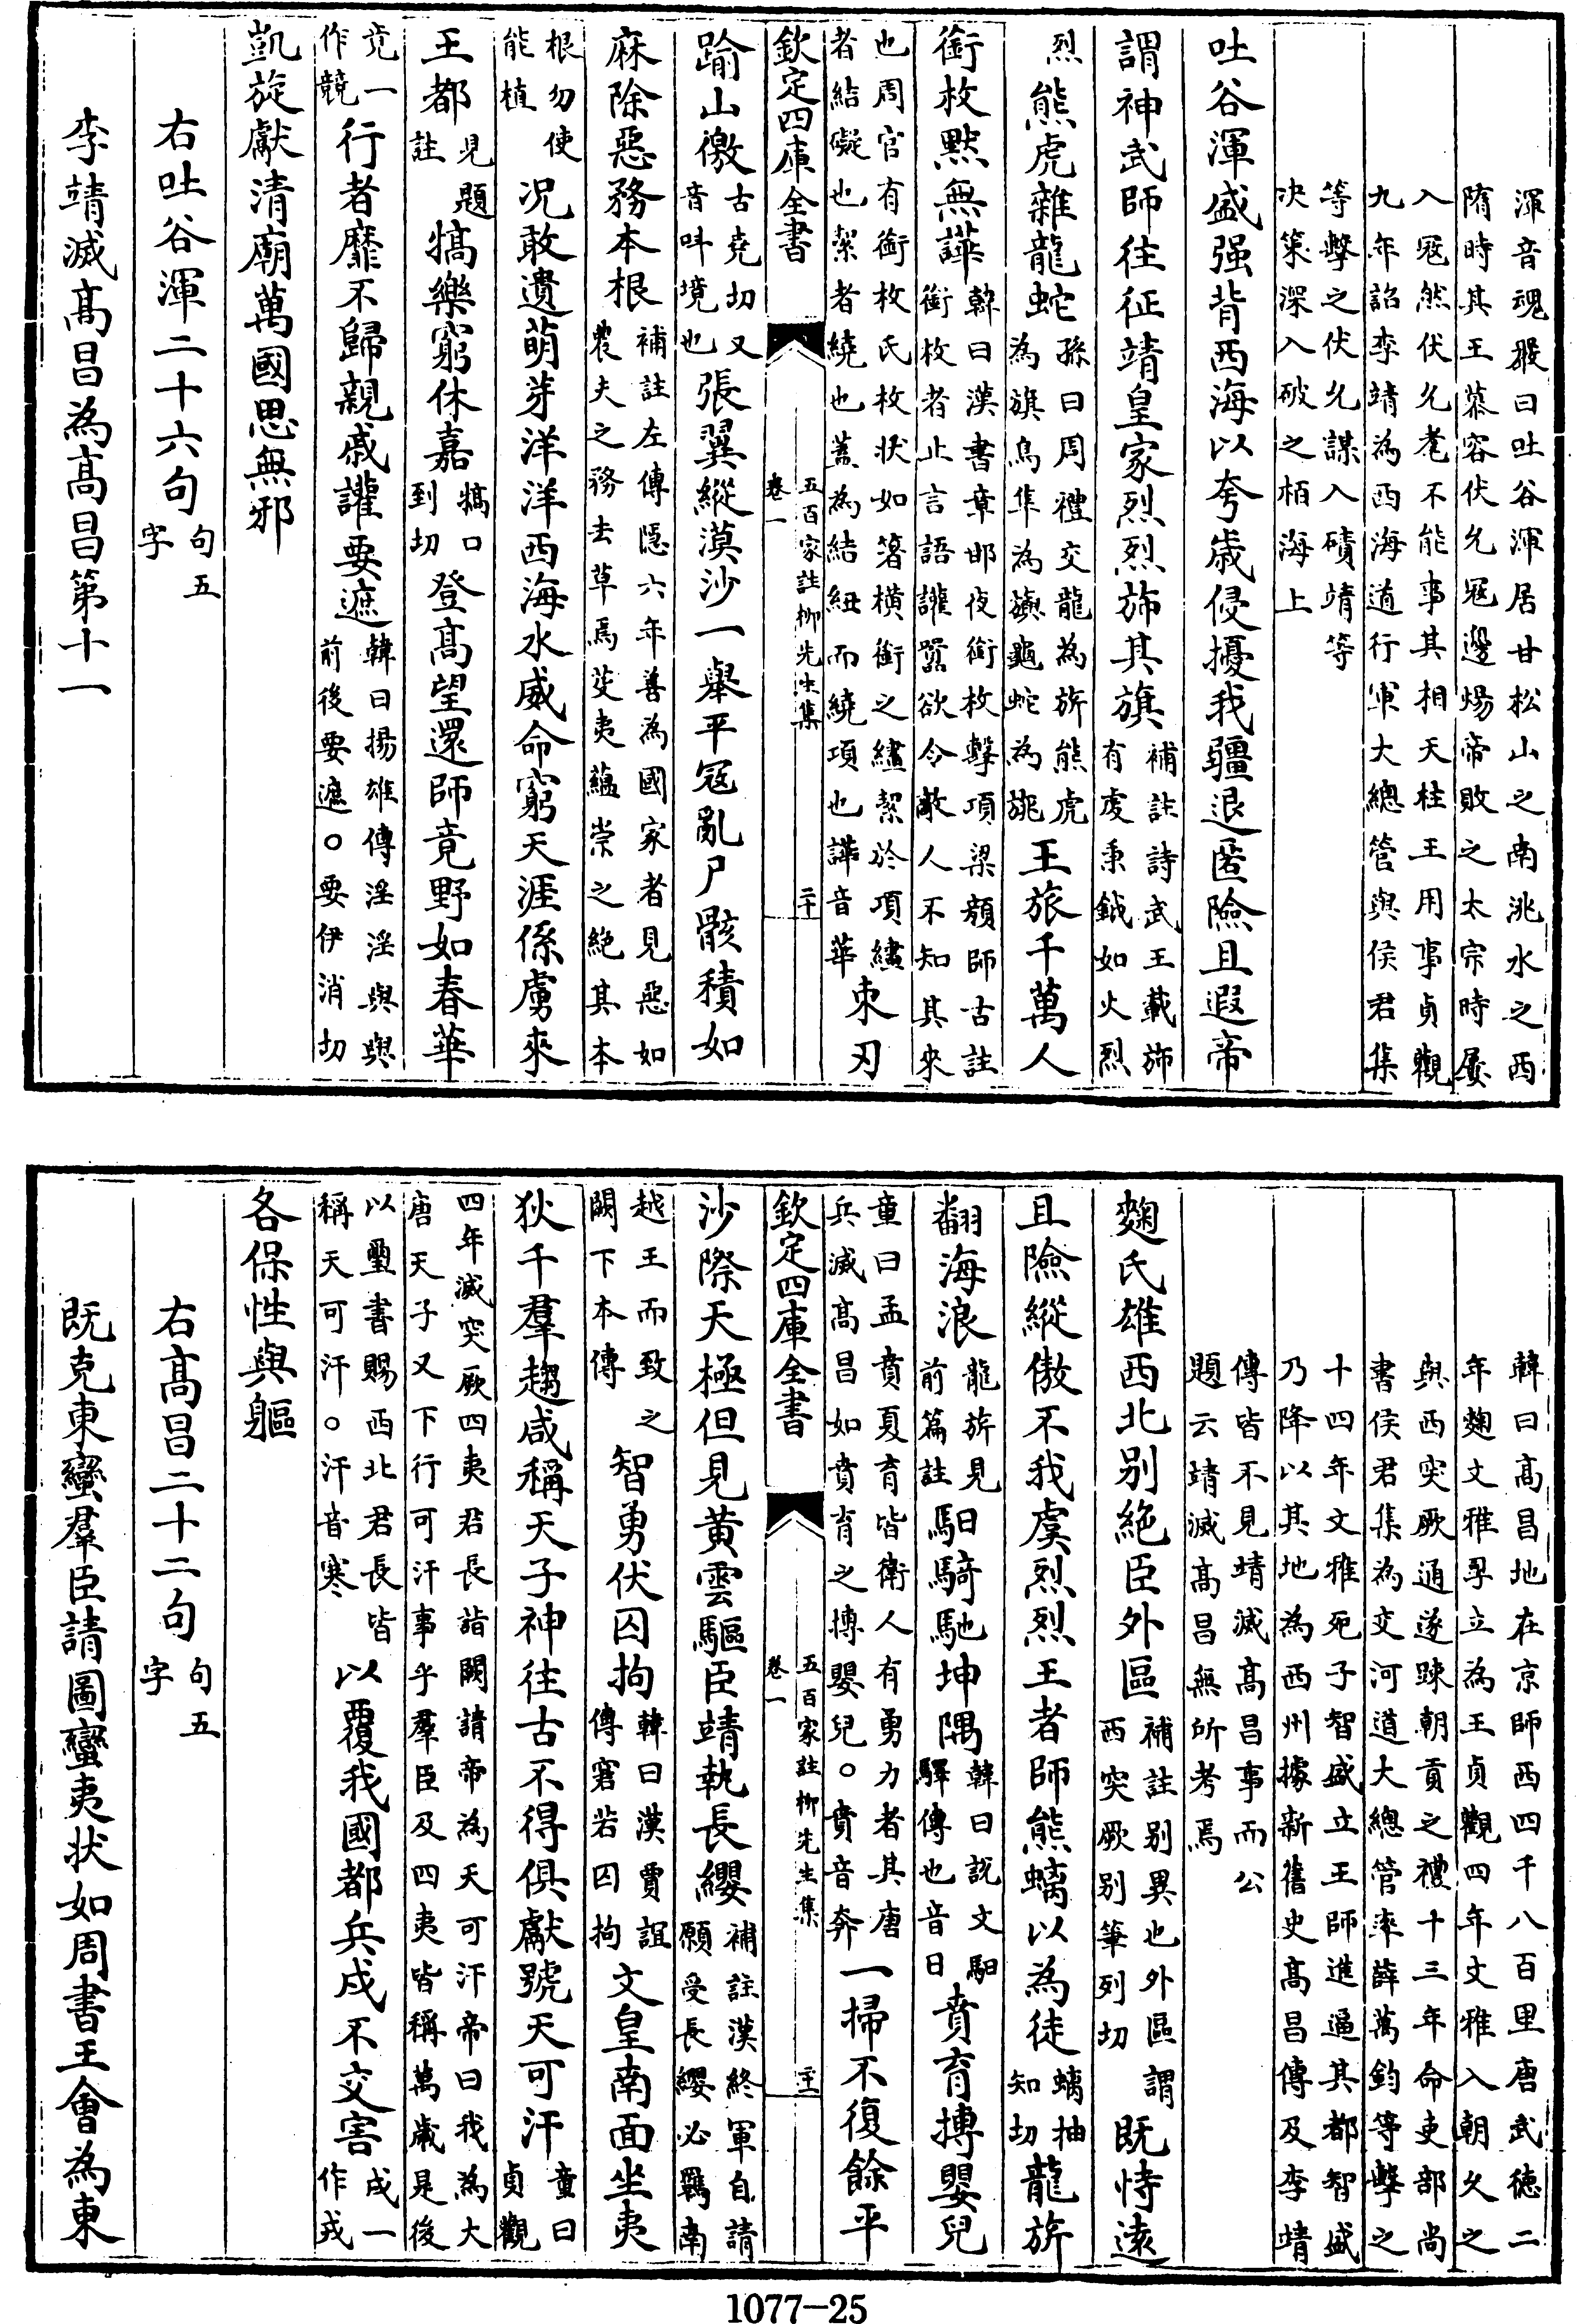 渾音魂殽曰吐谷渾居甘松山之南洮水之西
隋時其王慕容伏允冦邊煬帝敗之太宗時屢
入冦然伏允耄不能事其相天柱王用事貞觀
九年詔李靖為西海道行軍大總管與侯君集
等擊之伏允謀入磧靖等
决策深入破之栢海上
吐谷渾盛强背西海以夸歳侵擾我疆退匿險且遐帝
謂神武師往征靖皇家烈烈斾其旗補註詩武王載斾有虔秉鉞如火烈
烈熊虎雜龍蛇孫曰周禮交龍為旂熊虎為旗鳥隼為旟龜蛇為旐王旅千萬人
銜枚黙無譁韓曰漢書章邯夜銜枚擊項梁顔師古註銜枚者止言語讙囂欲令敵人不知其來
也周官有銜枚氏枚狀如箸横銜之繣絜於項繣者結礙也絜者繞也蓋為結紐而繞項也譁音華朿刃
欽定四庫全書
五百家註柳先生集
卷一
二十
踰山徼古堯切又音呌境也張翼縱漠沙一舉平冦亂尸骸積如
麻除惡務本根補註左傳隱六年善為國家者見惡如農夫之務去草焉芟夷藴崇之絶其本
根勿使能植况敢遺萌芽洋洋西海水威命窮天涯係虜來
王都見題註犒樂窮休嘉犒口到切登髙望還師竟野如春華
竟一作競行者靡不歸親戚讙要遮韓曰揚雄傳淫淫與與前後要遮○要伊消切
凱旋獻清廟萬國思無邪
右吐谷渾二十六句句五字
李靖滅髙昌為髙昌第十一
韓曰髙昌地在京師西四千八百里唐武徳二
年麴文雅孠立為王貞觀四年文雅入朝久之
與西突厥通遂踈朝貢之禮十三年命吏部尚
書侯君集為交河道大總管率薛萬鈞等擊之
十四年文雅死子智盛立王師進逼其都智盛
乃降以其地為西州據新舊史髙昌傳及李靖
傳皆不見靖滅髙昌事而公
題云靖滅髙昌無所考焉
麴氏雄西北别絶臣外區補註别異也外區謂西突厥别筆列切既恃逺
且險縱傲不我虞烈烈王者師熊螭以為徒螭抽知切龍旂
翻海浪龍旂見前篇註馹騎馳坤隅韓曰説文馹驛傳也音日賁育搏嬰兒
童曰孟賁夏育皆衛人有勇力者其唐兵滅髙昌如賁育之搏嬰兒○賁音奔一掃不復餘平
欽定四庫全書
五百家註柳先生集
卷一
二十一
沙際天極但見黄雲驅臣靖執長纓補註漢終軍自請願受長纓必羈南
越王而致之闕下本傳智勇伏囚拘韓曰漢賈誼傳窘若囚拘文皇南面坐夷
狄千羣趨咸稱天子神往古不得俱獻號天可汗童曰貞觀
四年滅突厥四夷君長詣闕請帝為天可汗帝曰我為大唐天子又下行可汗事乎羣臣及四夷皆稱萬歳是後
以璽書賜西北君長皆稱天可汗○汗音寒以覆我國都兵戍不交害戍一作戎
各保性與軀
右髙昌二十二句句五字
既克東蠻羣臣請圖蠻夷狀如周書王會為東
1077—25